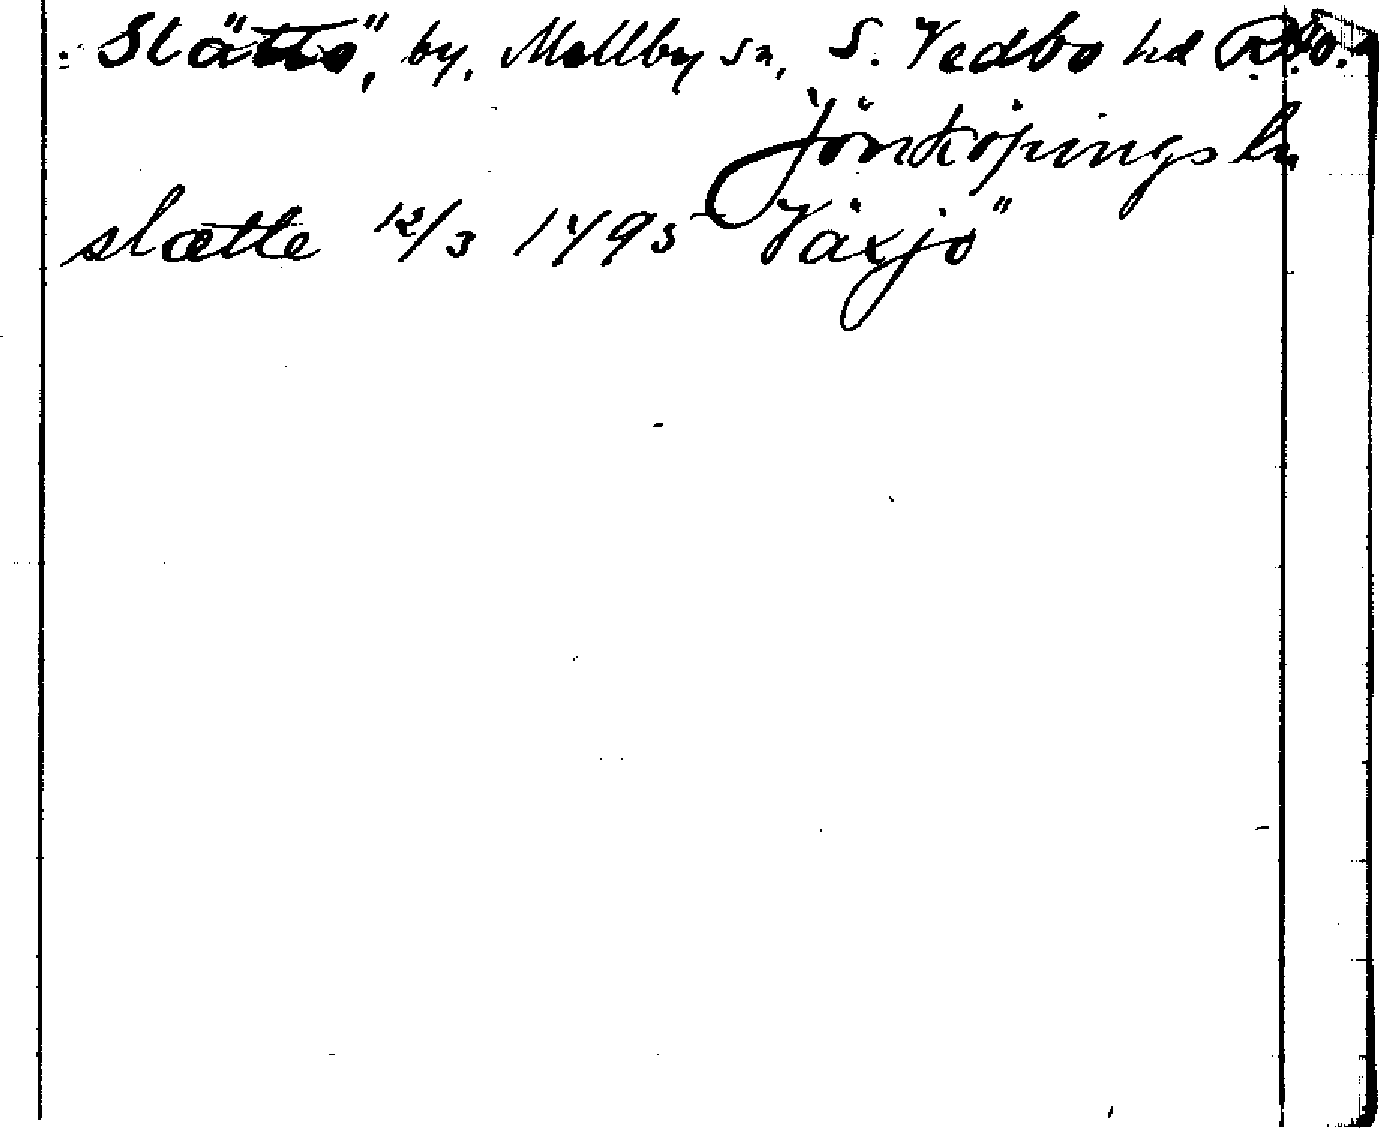 Slättö, by, Mellby sn, S. Vedbo hd
Jönköpings ln
slætte 12/3 1493 Växjö